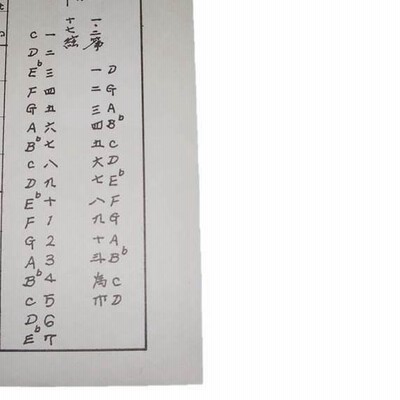 一.二箏
一 D
二 G
三 A
四 B♭
五 C
六 D
七 E♭
八 F
九 G
十 A
斗 B♭
為 C
巾 D
十七絃
C 一
D 二
E♭ 三
F 四
G 五
A 六
B♭ 七
C 八
D 九
E♭ 十
F 1
G 2
A 3
B♭ 4
C 5
D 6
E♭ 7